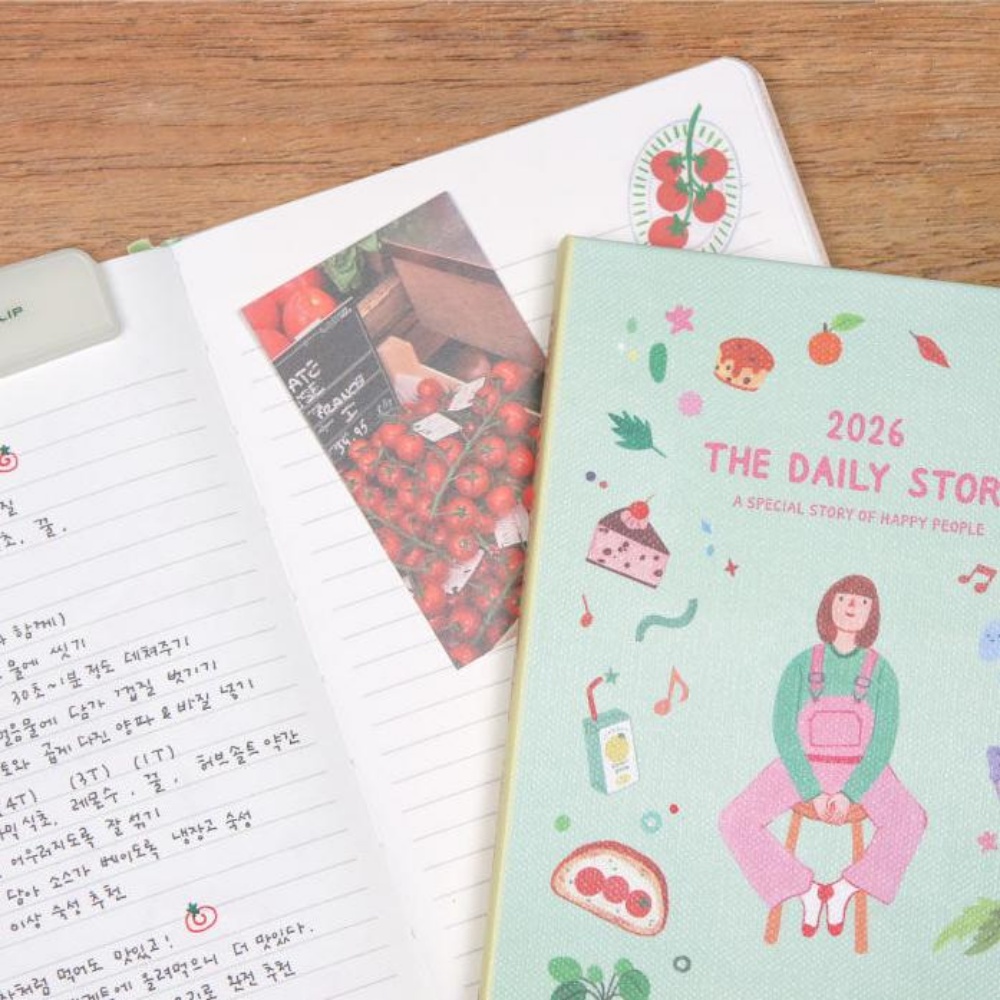 LIP
질
초, 꿀.
함께)
물에 씻기
30초~1분 정도 데쳐주기
얼음물에 담가 껍질 벗기기
토와 곱게 다진 양파 & 바질 넣기
(4T) (3T) (1T)
식초, 레몬수, 꿀, 허브솔트 약간
어우러지도록 잘 섞기
담아 소스가 베이도록 냉장고 숙성
이상 숙성 추천
처럼 먹어도 맛있고!
에 올려먹으니 더 맛있다.
로 완전 추천
FRANCE
I
39.95
2026
THE DAILY STOR
A SPECIAL STORY OF HAPPY PEOPLE